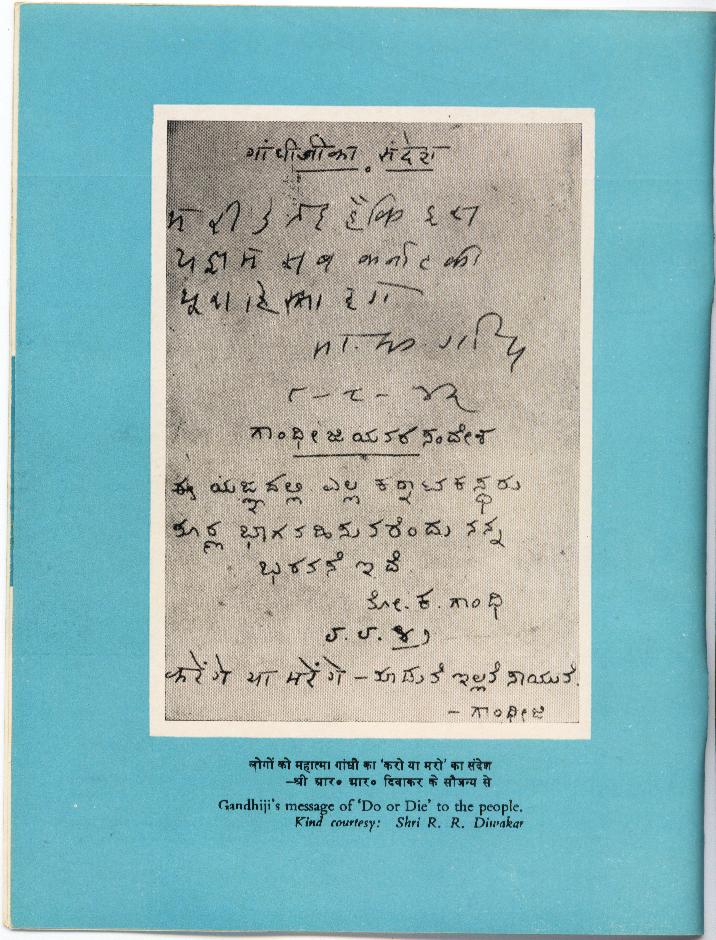 गांधीजीका संदेश
है कि इस
यज्ञ में सब कर्नाटकी
पूरा हिस्सा देंगे
मो. क. गांधी
८-८-४२
ಗಾಂಧೀಜಿಯವರ ಸಂದೇಶ
ಈ ಯಜ್ಞದಲ್ಲಿ ಎಲ್ಲ ಕರ್ನಾಟಕಸ್ಥರು
ಪೂರ್ಣ ಭಾಗವಹಿಸುವರೆಂದು ನನ್ನ
ಭರವಸೆ ಇದೆ
ಮೋ. ಕ. ಗಾಂಧಿ
೮.೮.೪೨
करेंगे या मरेंगे – ಮಾಡುತ್ತೆ ಇಲ್ಲವೆ ಸಾಯುತ್ತೆ.
– ಗಾಂಧೀಜಿ
लोगों को महात्मा गांधी का 'करो या मरो' का संदेश
—श्री आर० आर० दिवाकर के सौजन्य से
Gandhiji's message of 'Do or Die' to the people.
Kind courtesy: Shri R. R. Diwakar